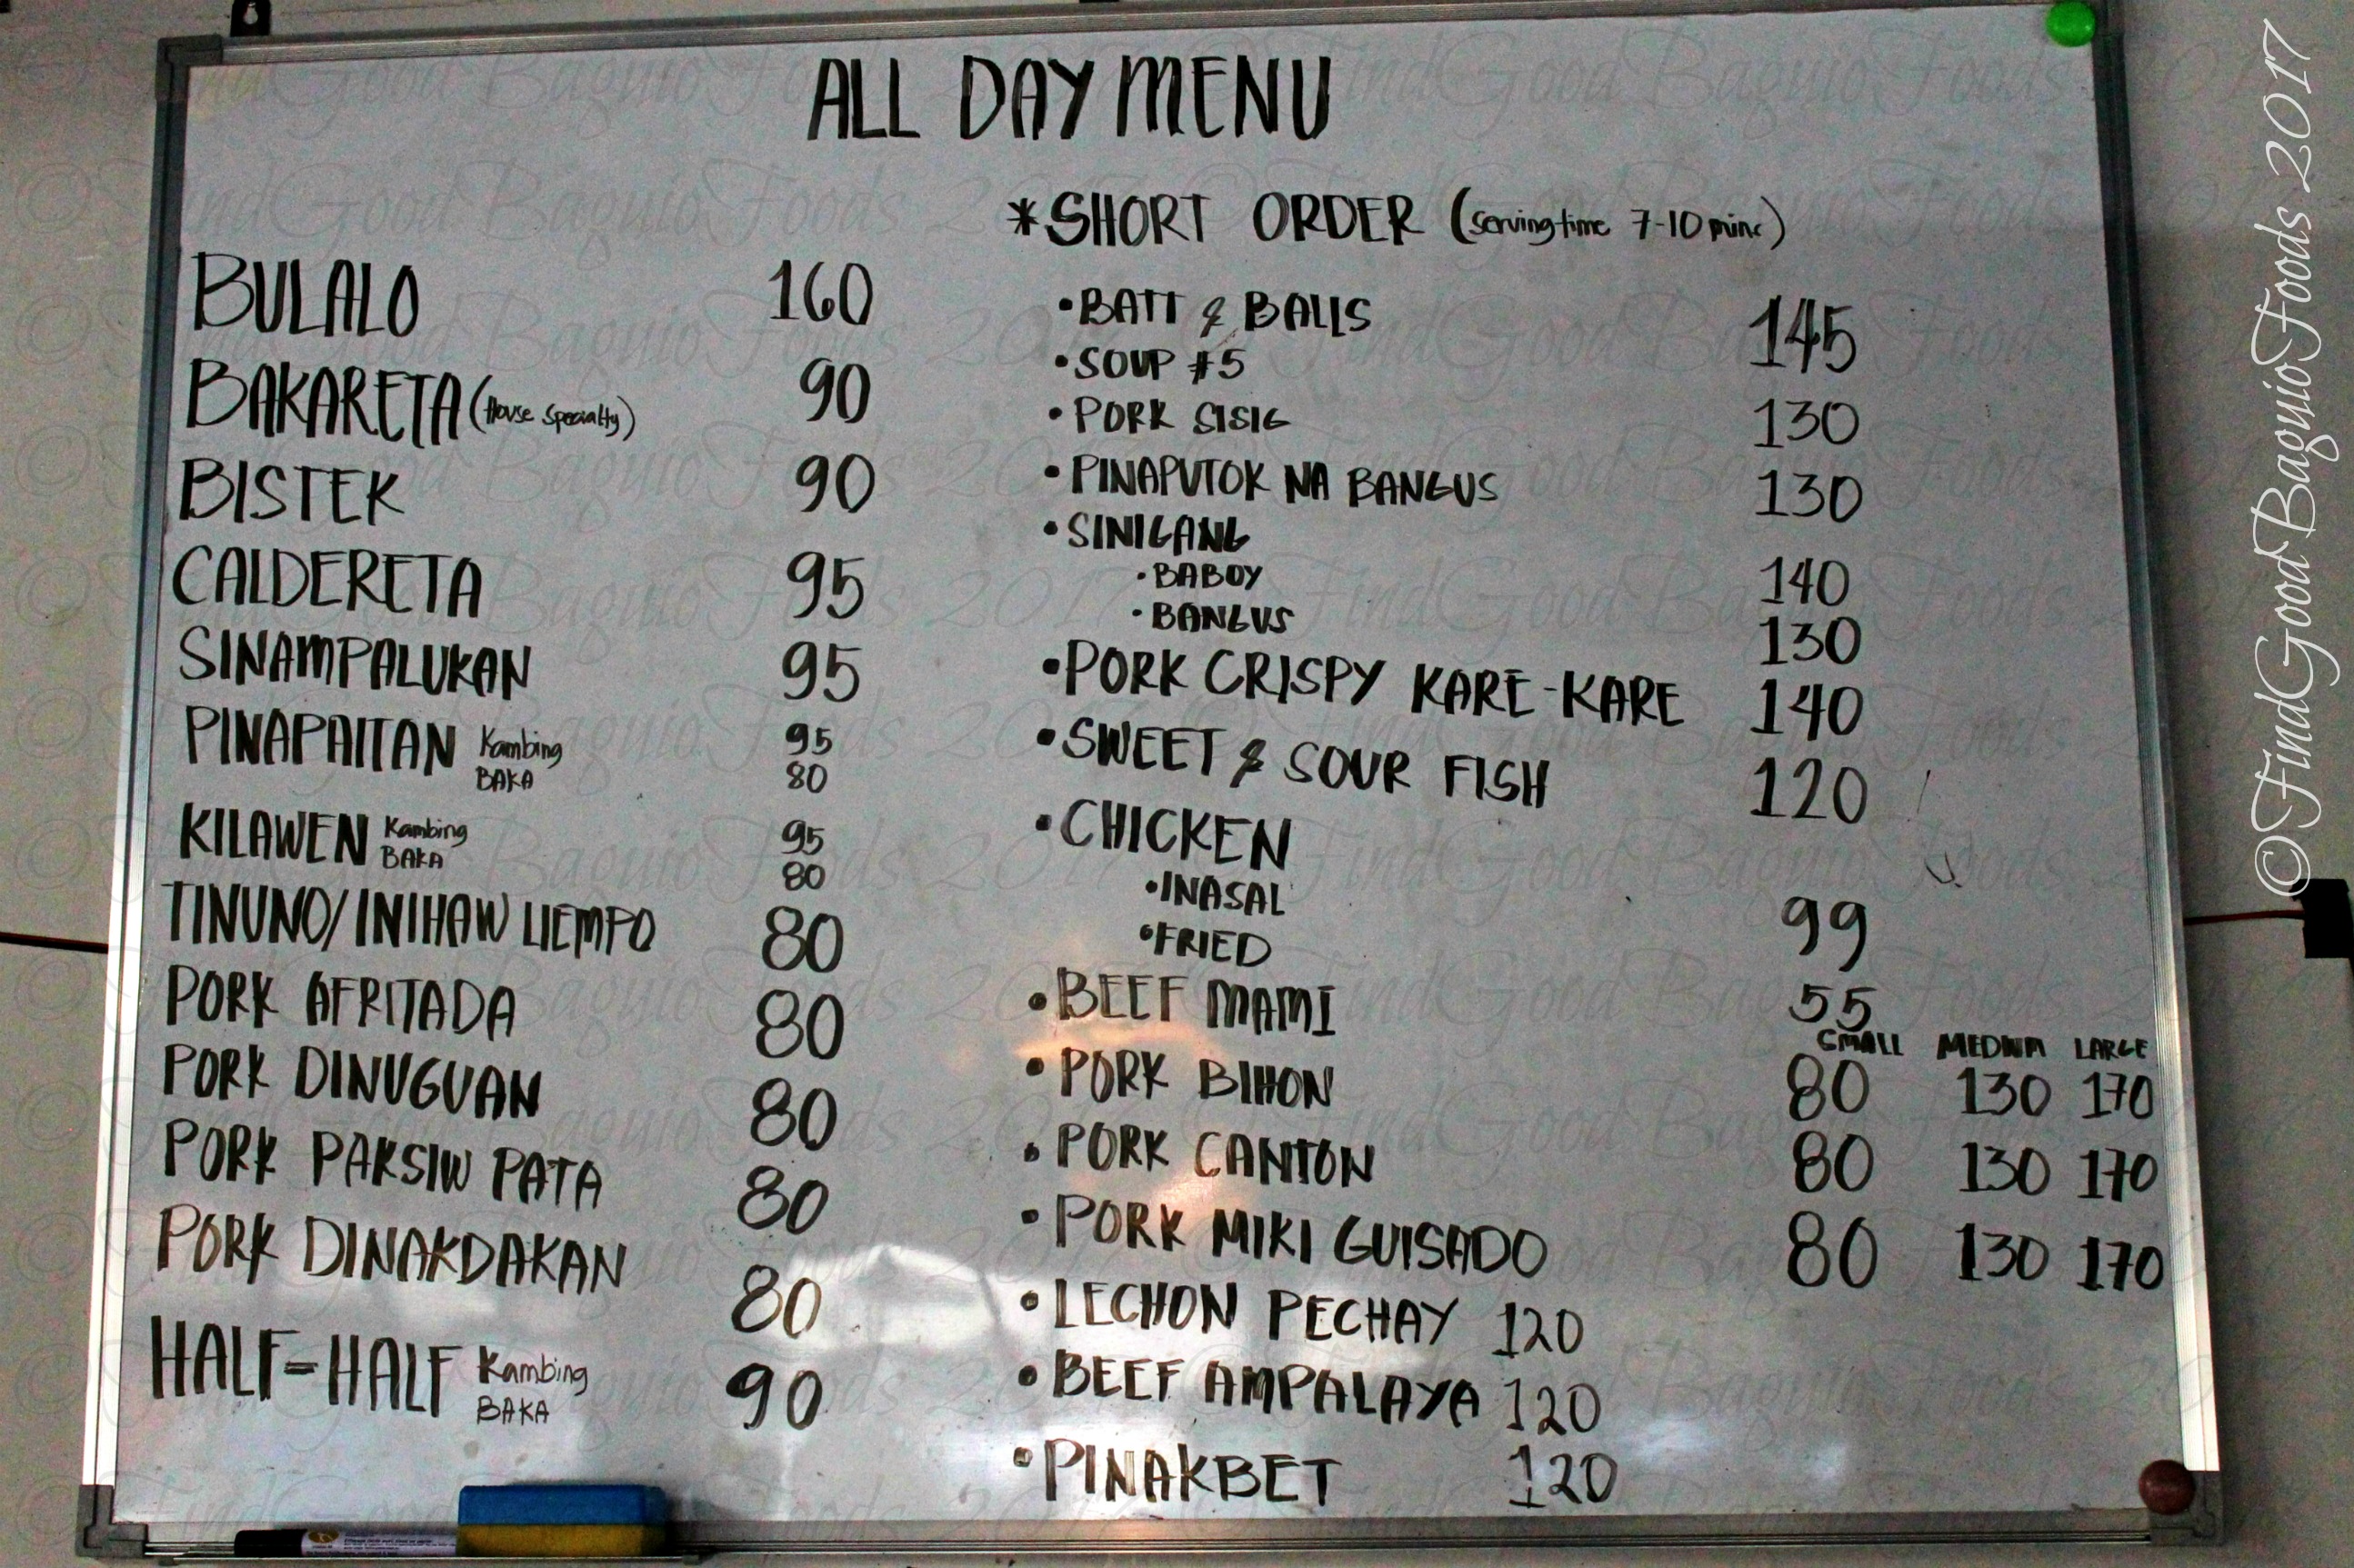 ALL DAY MENU
BULALO 160
BAKARETA (House Specialty) 90
BISTEK 90
CALDERETA 95
SINAMPALUKAN 95
PINAPAITAN Kambing 95
BAKA 80
KILAWEN Kambing 95
BAKA 80
TINUNO/INIHAW LIEMPO 80
PORK AFRITADA 80
PORK DINUGUAN 80
PORK PAKSIW PATA 80
PORK DINAKDAKAN 80
HALF-HALF Kambing 90
BAKA
*SHORT ORDER (serving time 7-10 mins)
•BATT & BALLS 145
•SOUP #5
•PORK SISIG 130
•PINAPUTOK NA BANGUS 130
•SINIGANG
•BABOY 140
•BANGUS 130
•PORK CRISPY KARE-KARE 140
•SWEET & SOUR FISH 120
•CHICKEN
•INASAL 99
•FRIED
•BEEF MAMI 55
SMALL MEDIUM LARGE
•PORK BIHON 80 130 170
•PORK CANTON 80 130 170
•PORK MIKI GUISADO 80 130 170
•LECHON PECHAY 120
•BEEF AMPALAYA 120
•PINAKBET 120
©FindGoodBaguioFoods 2017